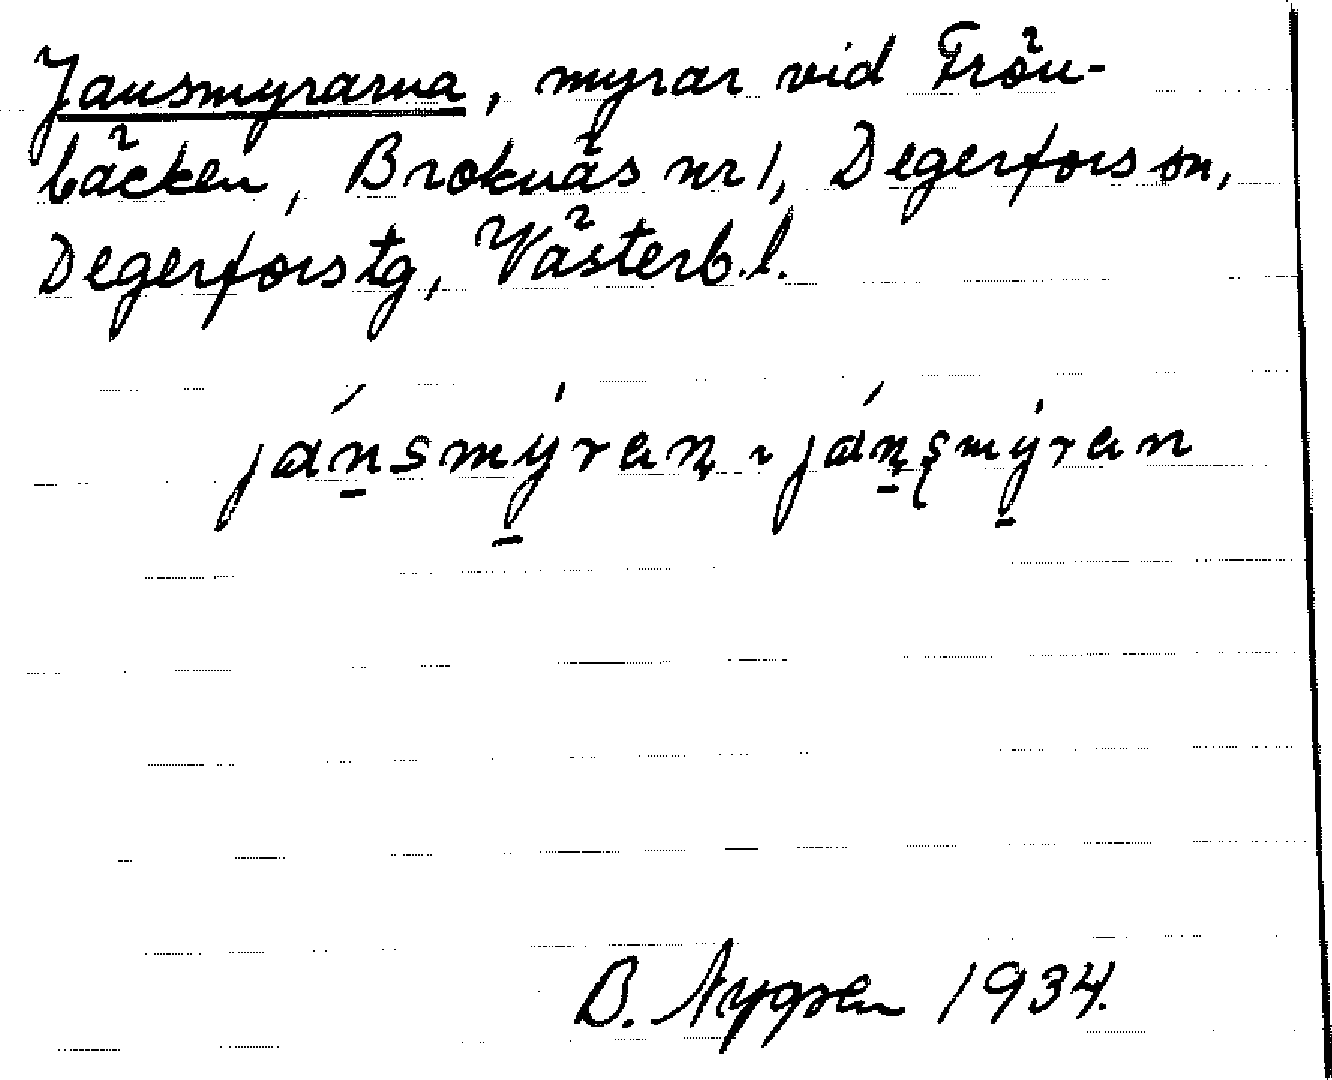 Jansmyrarna, myrar vid Frön-
bäcken, Broknäs nr 1, Degerfors sn,
Degerfors tg, Västerb.l.
jánsmýran, ~ jánsmýran
B. Nygren 1934.